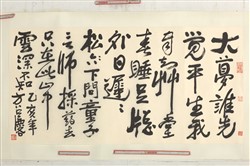 大夢誰先
覺平生我
自知艸堂
春睡足窗
外日遲遲
松下問童子
言師採藥去
只在此山中
雲深不知處乙亥年